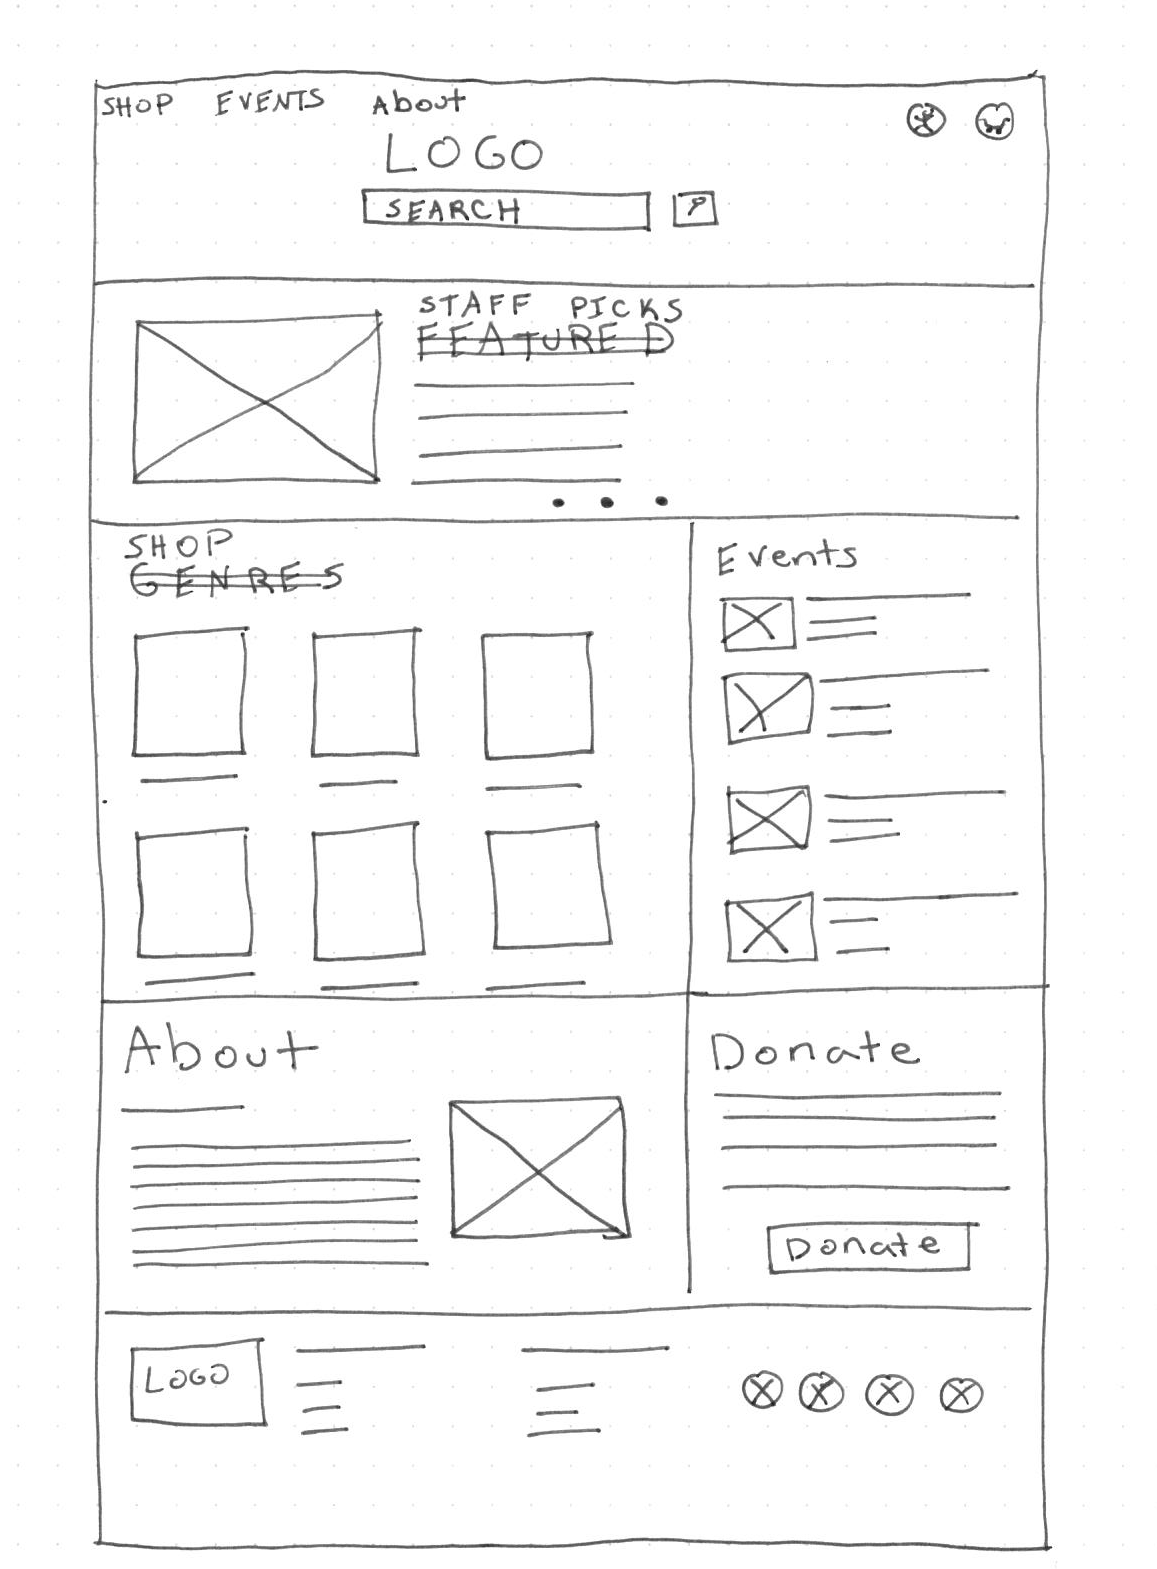 SHOP EVENTS About
LOGO
SEARCH
STAFF PICKS
FEATURED
SHOP
GENRES
Events
About
Donate
Donate
LOGO